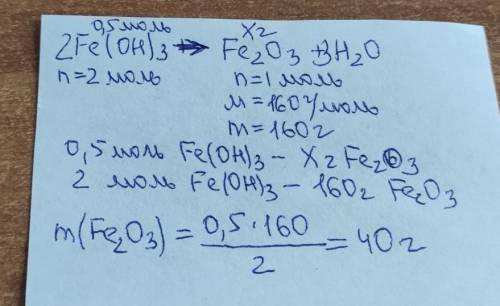 0,5 моль X г
2Fe(OH)3 → Fe2O3 + 3H2O
n = 2 моль n = 1 моль
M = 160 г/моль
m = 160 г
0,5 моль Fe(OH)3 – X г Fe2O3
2 моль Fe(OH)3 – 160 г Fe2O3
m(Fe2O3) = 0,5·160 / 2 = 40 г